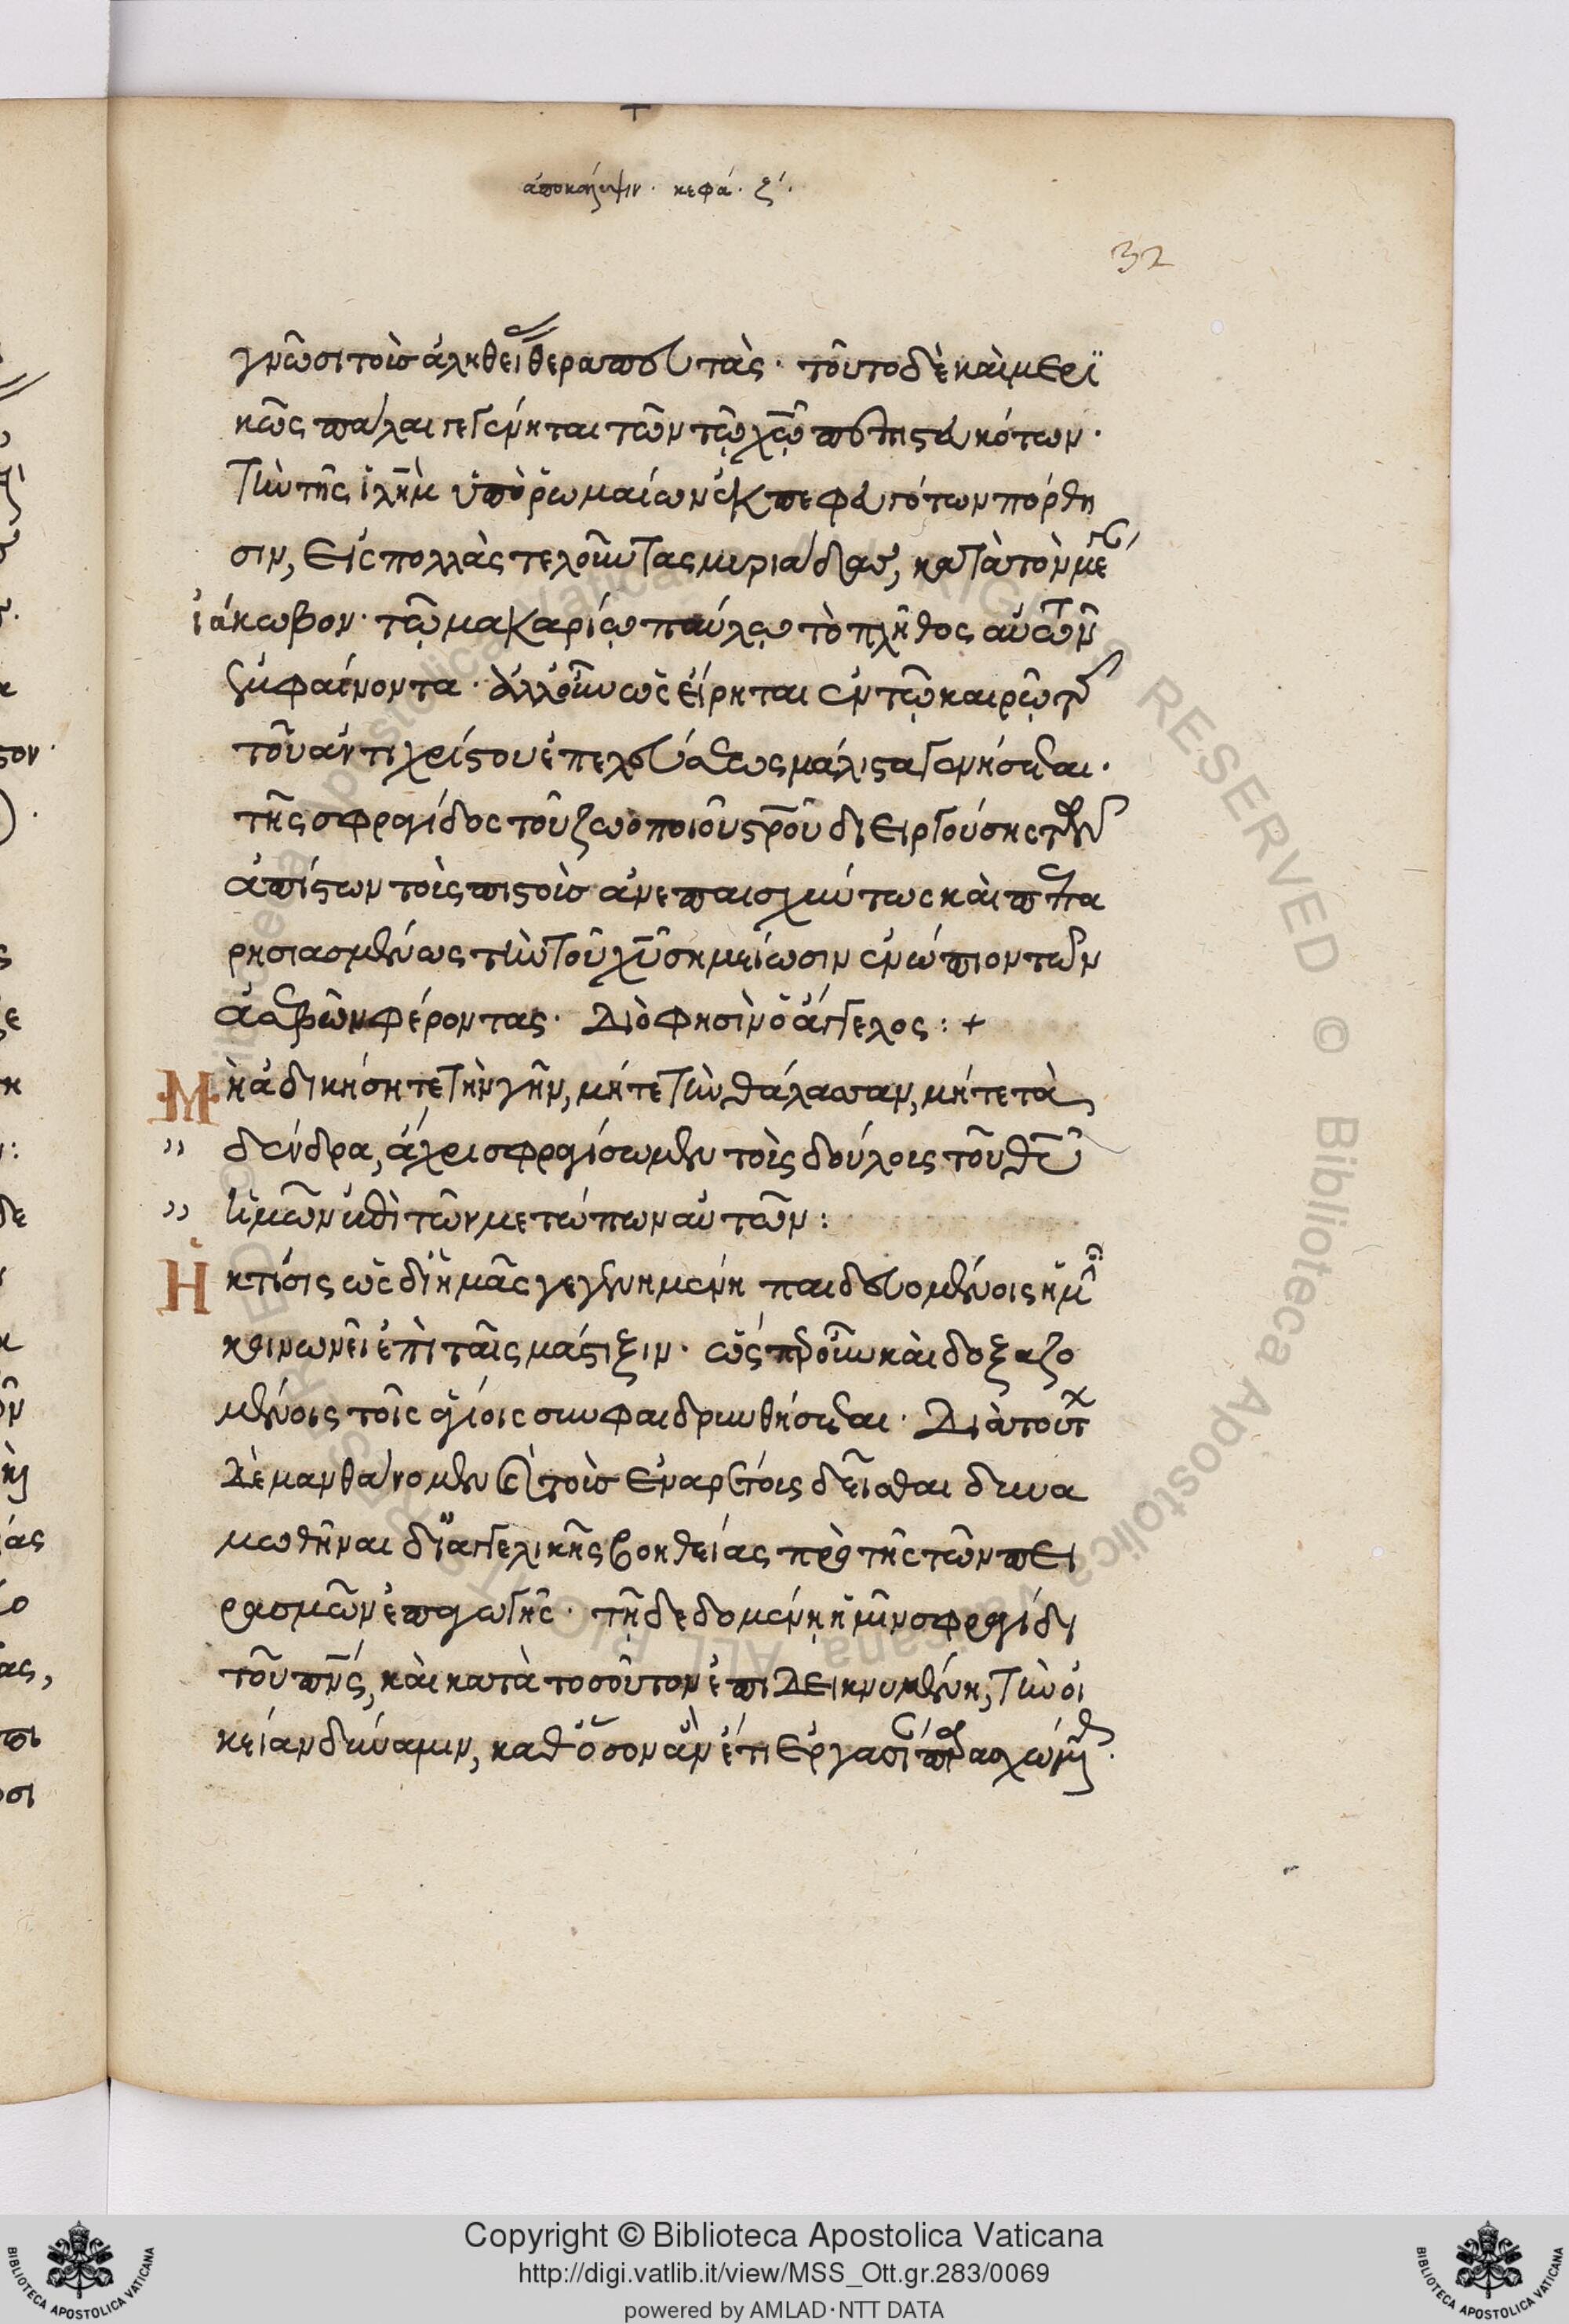 ἀποκάλυψιν. κεφά. ζʹ.
32
γνῶσι τοὺς ἀληθείας θεραπευτάς· τοῦτο δὲ καὶ μερϊ
κῶς πάλαι γεγένηται τῶν τῷ χῷ πεπιστευκότων·
τὴν τῆς ἱλῆμ ὑπὸ ῥωμαίων ἐκπεφευγότων πόρθη
σιν, εἰς πολλὰς τελοῦντας μυριάδας, κατὰ τὸν μέγαν
ἰάκωβον· τῷ μακαρίῳ παύλῳ τὸ πλῆθος αὐτῶν
ἐμφαίνοντα· ἀλλ' οὖν ὡς εἴρηται ἐν τῷ καιρῷ τῆς
τοῦ ἀντιχρίστου ἐπελεύσεως μάλιστα γενήσεται·
τῆς σφραγίδος τοῦ ζωοποιοῦ στροῦ διειργούσης τῶν
ἀπίστων τοὺς πιστοὺς ἀνεπαισχύντως καὶ πεπα
ρησιασμένως τὴν τοῦ χῦ σημείωσιν ἐνώπιον τῶν
ἀσεβῶν φέροντας· Διὸ φησὶν ὁ ἄγγελος: +
Μὴ ἀδικήσητε τὴν γῆν, μήτε τὴν θάλασσαν, μήτε τὰ
" δένδρα, ἄχρι σφραγίσωμεν τοὺς δούλους τοῦ θῦ
" ἡμῶν ἐπὶ τῶν μετώπων αὐτῶν:
Ἡ κτίσις ὡς δι' ἡμᾶς γεγενημένη παιδευομένοις ἡμῖν
κοινωνεῖ ἐπὶ ταῖς μάστιξιν· ὥσπερ οὖν καὶ δοξαζο
μένοις τοῖς ἁγίοις συμφαιδρυνθήσεται· Διὰ τούτων
δὲ μανθάνομεν καὶ τοὺς ἐναρέτους δεῖσθαι δυνα
μωθῆναι δι' ἀγγελικῆς βοηθείας πρὸ τῆς τῶν πει
ρασμῶν ἐπαγωγῆς· τῇ δεδομένῃ ἡμῖν σφραγίδι
τοῦ πνς, καὶ κατὰ τοσοῦτον ἐπιδεικνυμένη, τὴν οἰ
κείαν δύναμιν, καθ' ὅσον ἂν ἔτι ἐργασίαν παράσχωμεν.
Copyright © Biblioteca Apostolica Vaticana
http://digi.vatlib.it/view/MSS_Ott.gr.283/0069
powered by AMLAD·NTT DATA